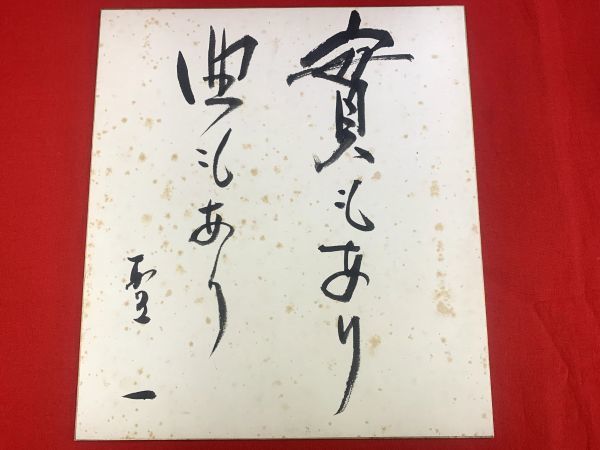 實もあり
曲もあり
聖一